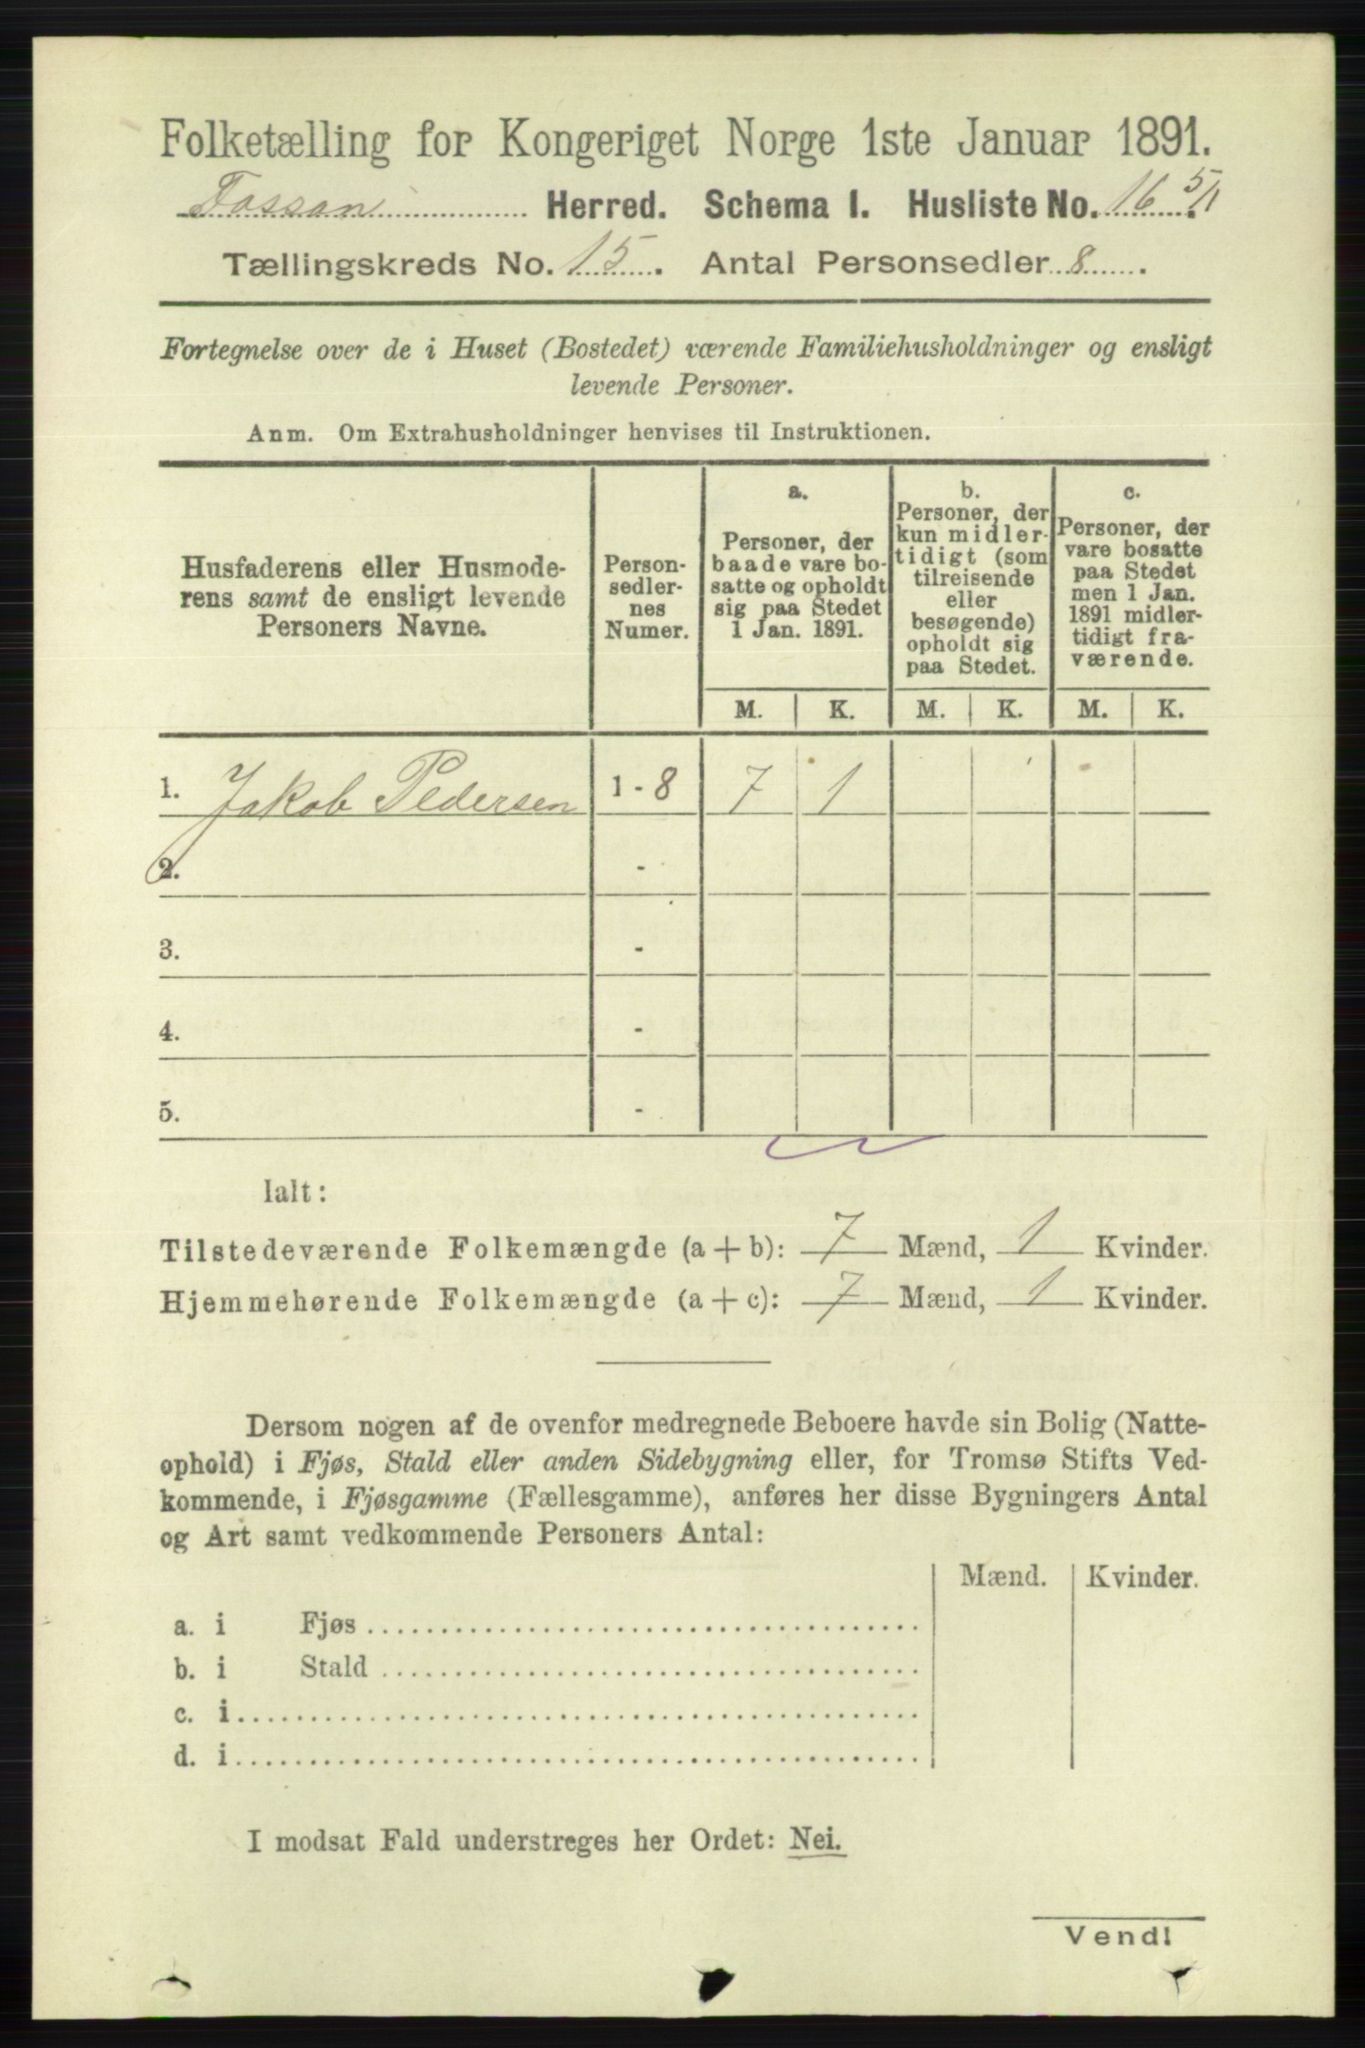 Folketælling for Kongeriget Norge 1ste Januar 1891.
Fossan Herred. Schema I. Husliste No. 16 5/1
Tællingskreds No. 15. Antal Personsedler 8.
Fortegnelse over de i Huset (Bostedet) værende Familiehusholdninger og ensligt
levende Personer.
Anm. Om Extrahusholdninger henvises til Instruktionen.
Husfaderens eller Husmode-
rens samt de ensligt levende
Personers Navne.
Person-
sedler-
nes
Numer.
a.
Personer, der
baade vare bo-
satte og opholdt
sig paa Stedet
1 Jan. 1891.
b.
Personer, der
kun midler-
tidigt (som
tilreisende
eller
besøgende)
opholdt sig
paa Stedet.
c.
Personer, der
vare bosatte
paa Stedet
men 1 Jan.
1891 midler-
tidigt fra-
værende.
M. K. M. K. M. K.
1. Jakob Pedersen 1 - 8 7 1
2. -
3. -
4. -
5. -
Ialt:
Tilstedeværende Folkemængde (a + b): 7 Mænd, 1 Kvinder.
Hjemmehørende Folkemængde (a + c): 7 Mænd, 1 Kvinder.
Dersom nogen af de ovenfor medregnede Beboere havde sin Bolig (Natte-
ophold) i Fjøs, Stald eller anden Sidebygning eller, for Tromsø Stifts Ved-
kommende, i Fjøsgamme (Fællesgamme), anføres her disse Bygningers Antal
og Art samt vedkommende Personers Antal:
Mænd. Kvinder.
a. i Fjøs
b. i Stald
c. i
d. i
I modsat Fald understreges her Ordet: Nei.
Vend!